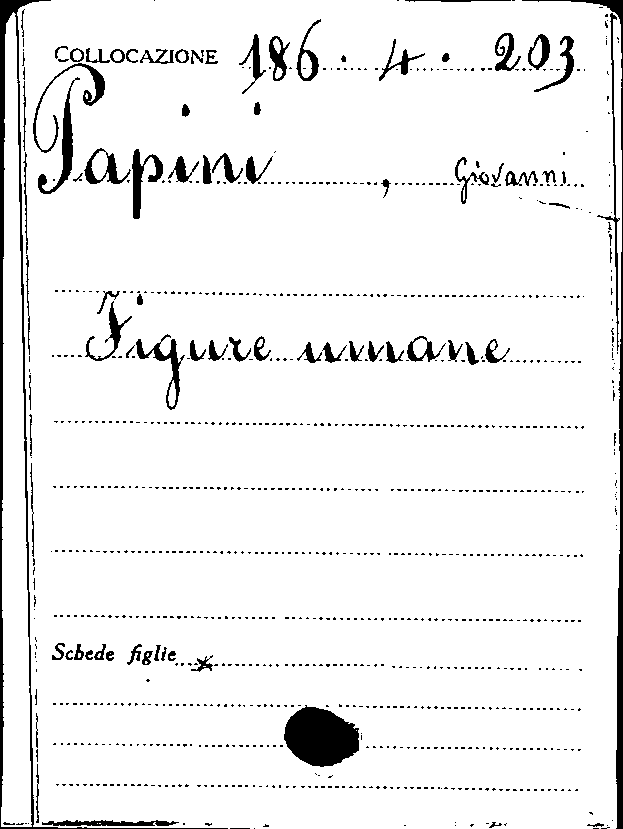 COLLOCAZIONE 186. 4. 203
Papini, Giovanni
Figure umane
Schede figlie *